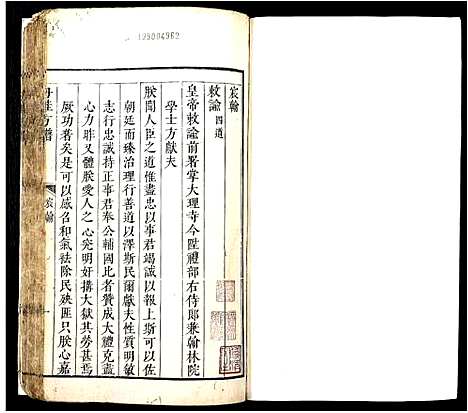 129004962
宸翰
敕諭四道
皇帝敕諭前署掌大理寺今陞禮部右侍郎兼翰林院
學士方獻夫
朕聞人臣之道惟盡忠以事君竭誠以報上斯可以佐
朝廷而臻治理行善道以澤斯民爾獻夫性質明敏
志行忠誠持正事君奉公輔國者贊成大禮克盡
心力眹又體朕愛人之心究明奸搆大獄其勞甚焉
厥功著矣是可以感召和氣祛除民殃匪只朕心嘉
丹桂方譜
宸翰